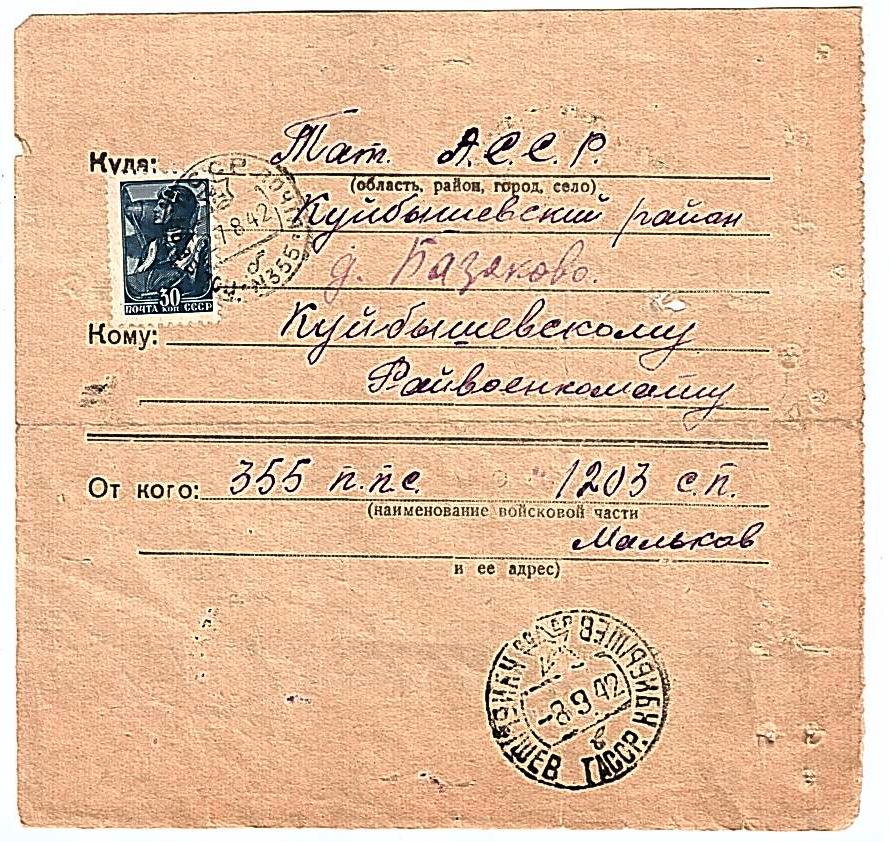 Куда: Тат. А.С.С.Р.
(область, район, город, село)
Куйбышевский район
д. Базяково.
30
ПОЧТА КОП СССР
7 8 42
№355
Кому: Куйбышевскому
Райвоенкомату
От кого: 355 п.п.с. 1203 с.п.
(наименование войсковой части
Мальков
и ее адрес)
КУЙБЫШЕВ
-8 9 42
КУЙБЫШЕВ ТАССР.